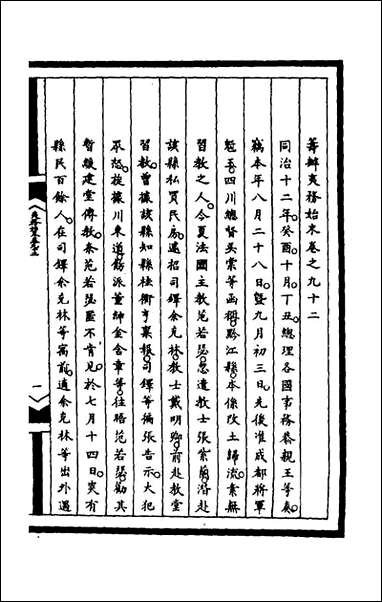 籌辦夷務始末卷之九十二
同治十二年癸酉十月丁丑總理各國事務恭親王等奏
竊本年八月二十八日暨九月初三日先後准成都將軍
魁玉四川總督吳棠等函稱黔江縣本係改土歸流素無
習教之人今夏法國主教范若瑟忽遣教士張紫蘭潛赴
該縣私買民房遞招司鐸余克林教士戴明卿前赴教堂
習教曾據該縣知縣桂衢亨稟報司鐸等偏張告示大犯
眾怒旋據川東道飭派董紳金含章等往晤范若瑟勸其
暫緩建堂傳教奈范若瑟匿不肯見於七月十四日突有
縣民百餘人在司鐸余克林等寓前適余克林等出外遇
一